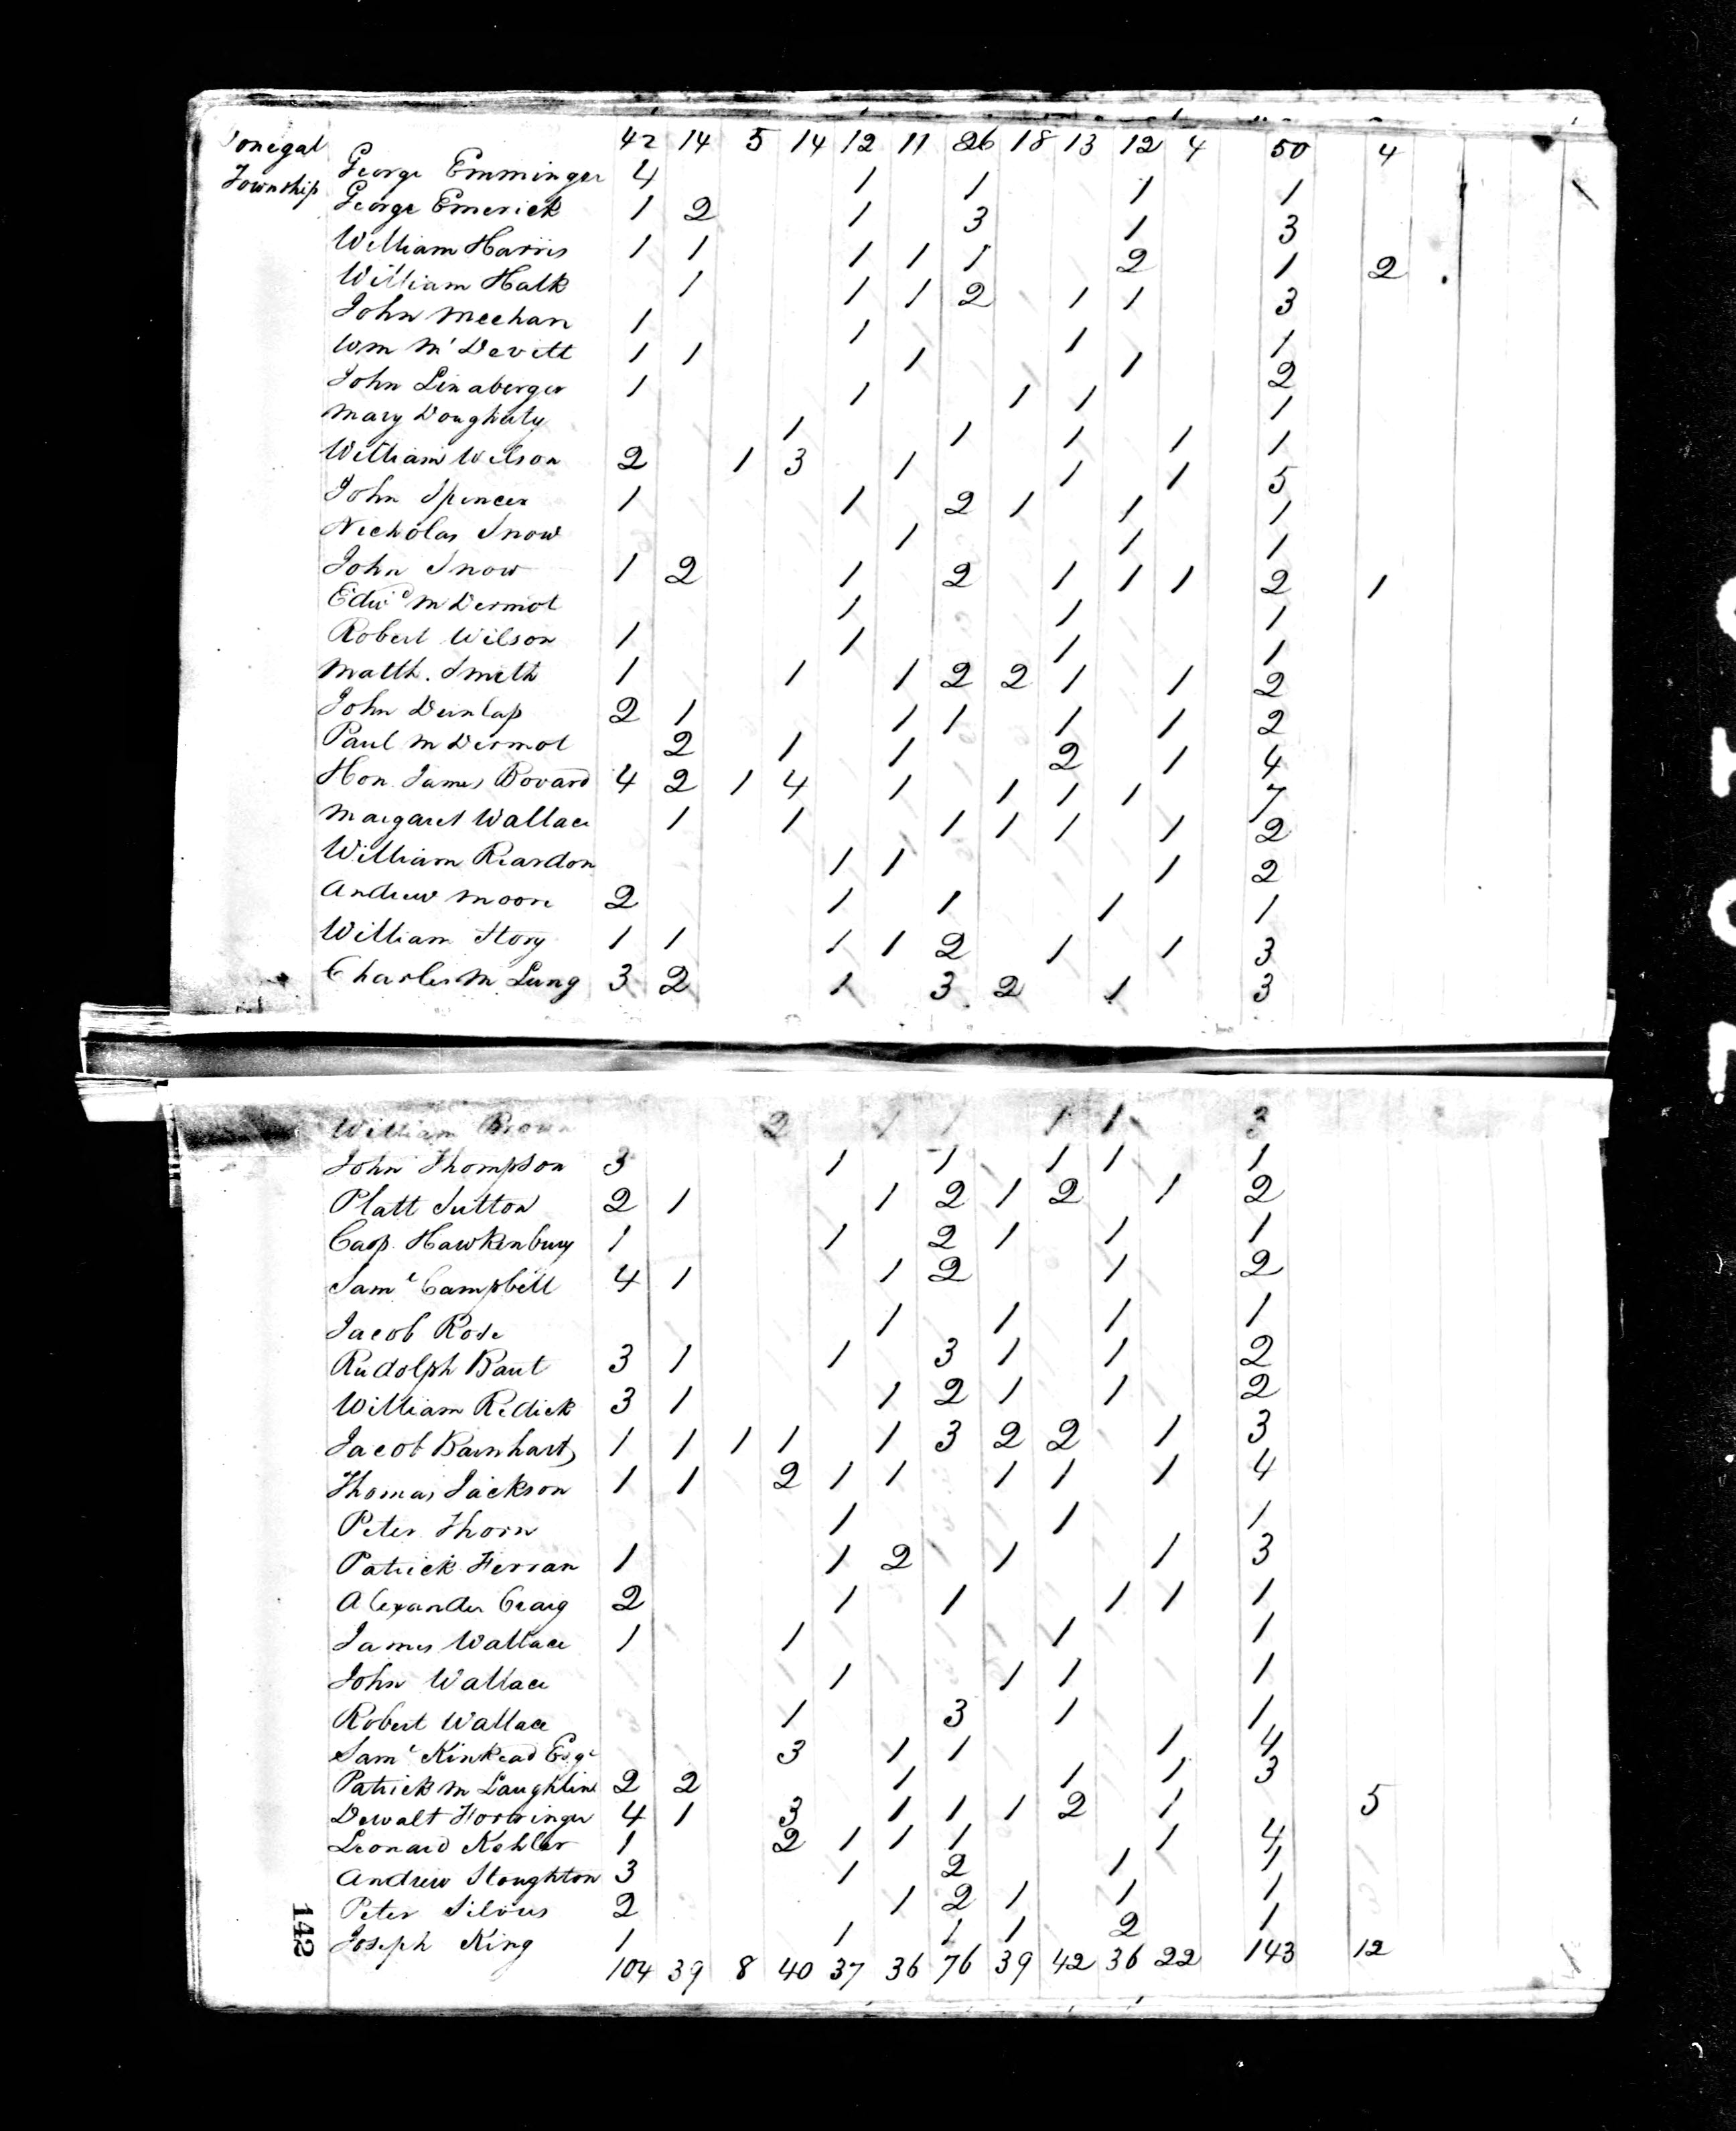 Donegal 42 14 5 14 12 11 26 18 13 12 4 50 4
Township George Emminger 4 1 1 1 1
George Emerick 1 2 1 3 1 3
William Harris 1 1 1 1 1 2 1 2
William Halk 1 1 1 2 1 1 3
John Meehan 1 1 1 1
Wm Mc Devitt 1 1 1 1 2
John Linaberger 1 1 1 1 1
Mary Dougherty 1 1 1 1 1
William Wilson 2 1 3 1 1 1 5
John Spencer 1 1 2 1 1 1
Nicholas Snow 1 1 1
John Snow 1 2 1 2 1 1 1 2 1
Edwd McDermot 1 1 1
Robert Wilson 1 1 1 1
Matth. Smith 1 1 1 2 2 1 1 2
John Dunlap 2 1 1 1 1 1 2
Paul McDermot 2 1 1 2 1 4
Hon. James Bovard 4 2 1 4 1 1 1 1 7
Margaret Wallace 1 1 1 1 1 1 2
William Reardon 1 1 1 2
Andrew Moore 2 1 1 1 1
William Story 1 1 1 1 2 1 1 3
Charles McLung 3 2 1 3 2 1 3
William Brown 2 1 1 1 1 3
John Thompson 3 1 1 1 1 1
Platt Sutton 2 1 1 2 1 2 1 2
Casp. Hawkenbury 1 1 2 1 1 1
Saml Campbell 4 1 1 2 1 2
Jacob Rose 1 1 1 1
Rudolph Baut 3 1 1 3 1 1 2
William Redick 3 1 1 2 1 1 2
Jacob Barnhart 1 1 1 1 1 3 2 2 1 3
Thomas Jackson 1 1 2 1 1 1 1 1 4
Peter Thorn 1 1 1
Patrick Ferran 1 1 2 1 1 3
Alexander Craig 2 1 1 1 1 1
James Wallace 1 1 1 1
John Wallace 1 1 1 1
Robert Wallace 1 3 1 1
Saml Kinkead Esqr 3 1 1 1 4
Patrick McLaughlin 2 2 1 1 1 3
Dewalt Forringer 4 1 3 1 1 1 2 1 5
Leonard Kohler 1 2 1 1 1 1 4
Andrew Stoughton 3 1 2 1 1
Peter Silvus 2 1 2 1 1 1
Joseph King 1 1 1 1 2 1
104 39 8 40 37 36 76 39 42 36 22 143 12
142